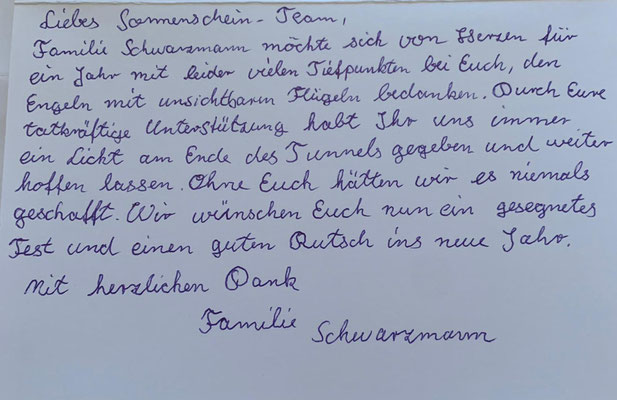 Liebes Sonnenschein-Team,
Familie Schwarzmann möchte sich von Herzen für
ein Jahr mit leider vielen Tiefpunkten bei Euch, den
Engeln mit unsichtbarn Flügeln bedanken. Durch Eure
tatkräftige Unterstützung habt Ihr uns immer
ein Licht am Ende des Tunnels gegeben und weiter
hoffen lassen. Ohne Euch hätten wir es niemals
geschafft. Wir wünschen Euch nun ein gesegnetes
Fest und einen guten Rutsch ins neue Jahr.
Mit herzlichen Dank
Familie Schwarzmann